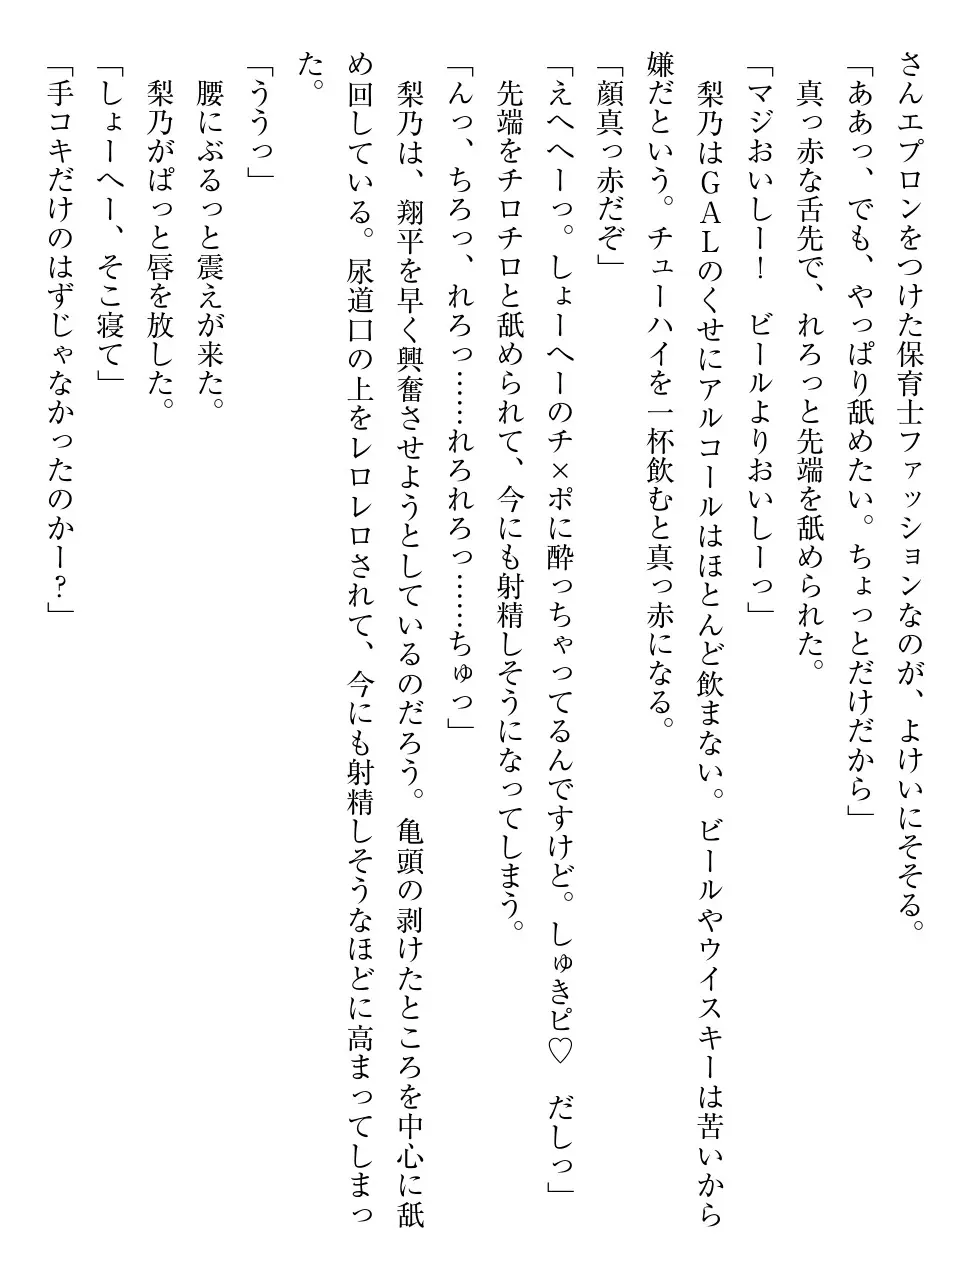 さんエプロンをつけた保育士ファッションなのが、よけいにそそる。
「ああっ、でも、やっぱり舐めたい。ちょっとだけだから」
真っ赤な舌先で、れろっと先端を舐められた。
「マジおいしー！　ビールよりおいしーっ」
梨乃はＧＡＬのくせにアルコールはほとんど飲まない。ビールやウイスキーは苦いから
嫌だという。チューハイを一杯飲むと真っ赤になる。
「顔真っ赤だぞ」
「えへへーっ。しょーへーのチ×ポに酔っちゃってるんですけど。しゅきピ♡　だしっ」
先端をチロチロと舐められて、今にも射精しそうになってしまう。
「んっ、ちろっ、れろっ……れろれろっ……ちゅっ」
梨乃は、翔平を早く興奮させようとしているのだろう。亀頭の剥けたところを中心に舐
め回している。尿道口の上をレロレロされて、今にも射精しそうなほどに高まってしまっ
た。
「ううっ」
腰にぶるっと震えが来た。
梨乃がぱっと唇を放した。
「しょーへー、そこ寝て」
「手コキだけのはずじゃなかったのかー？」